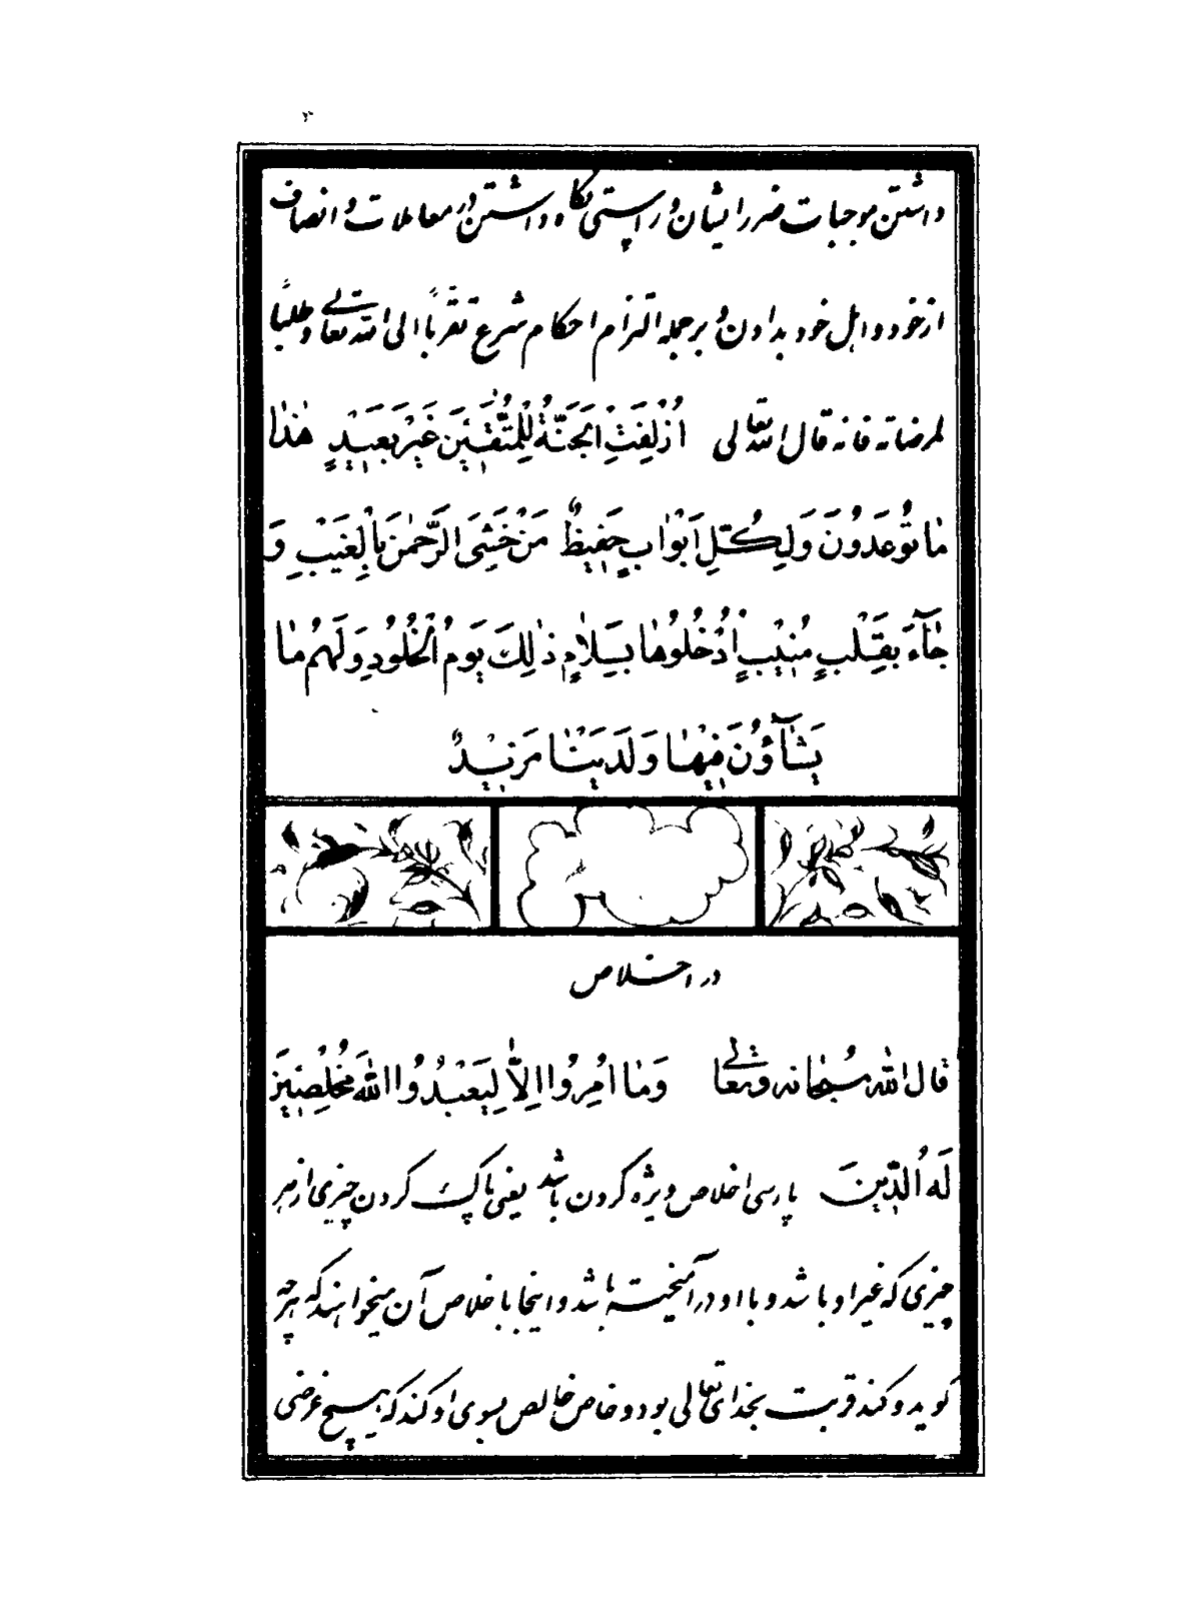 داشتن موجبات ضرر ایشان و راستی نگاه داشتن در معاملات و انصاف
از خود و اهل خود بدادن و بر جمله التزام احکام شرع تقرباً الی الله تعالی و طلباً
لمرضاته فانه قال الله تعالی اُزْلِفَتِ الْجَنَّةُ لِلْمُتَّقٖینَ غَیْرَ بَعٖیدٍ هٰذٰا
مٰا تُوعَدُونَ وَلِکُلِّ اَوّٰابٍ حَفٖیظٌ مَنْ خَشِیَ الرَّحْمٰنَ بِالْغَیْبِ وَ
جٰٓاءَ بِقَلْبٍ مُنٖیبٍ اُدْخُلُوهٰا بِسَلاٰمٍ ذٰلِكَ یَومُ الْخُلُودِ وَلَهُمْ مٰا
یَشٰٓاؤُنَ فٖیهٰا وَلَدَیْنٰا مَزٖیدٌ
در اخلاص
قال الله سُبحٰانه وتعٰالی وَمٰا اُمِرُوا اِلاّٰ لِیَعْبُدُوا اللهَ مُخْلِصٖینَ
لَهُ الدّٖینَ پارسی اخلاص ویژه کردن باشد یعنی پاک کردن چیزی از هر
چیزی که غیر او باشد و با او در آمیخته باشد و اینجا باخلاص آن میخواهند که هر چه
گوید و کند قربت بخدای تعالی بود و خاص خالص بسوی او کند که هیچ غرضی